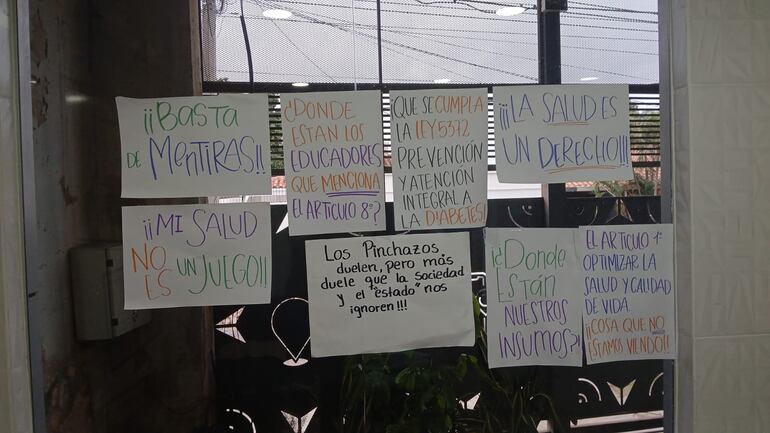 ¡¡BASTA
DE MENTIRAS!!
¿DONDE
ESTAN LOS
EDUCADORES
QUE MENCIONA
EL ARTICULO 8º?
QUE SE CUMPLA
LA LEY 5372
PREVENCIÓN
Y ATENCIÓN
INTEGRAL A
LA DIABETES
¡¡¡LA SALUD ES
UN DERECHO!!!
¡¡MI SALUD
NO ES UN JUEGO!!
Los Pinchazos
duelen, pero más
duele que la sociedad
y el "estado" nos
ignoren!!!
¡¿Donde
ESTÁN
NUESTROS
INSUMOS?!
EL ARTICULO 1º
OPTIMIZAR LA
SALUD Y CALIDAD
DE VIDA.
¡¡COSA QUE NO
ESTAMOS VIENDO!!